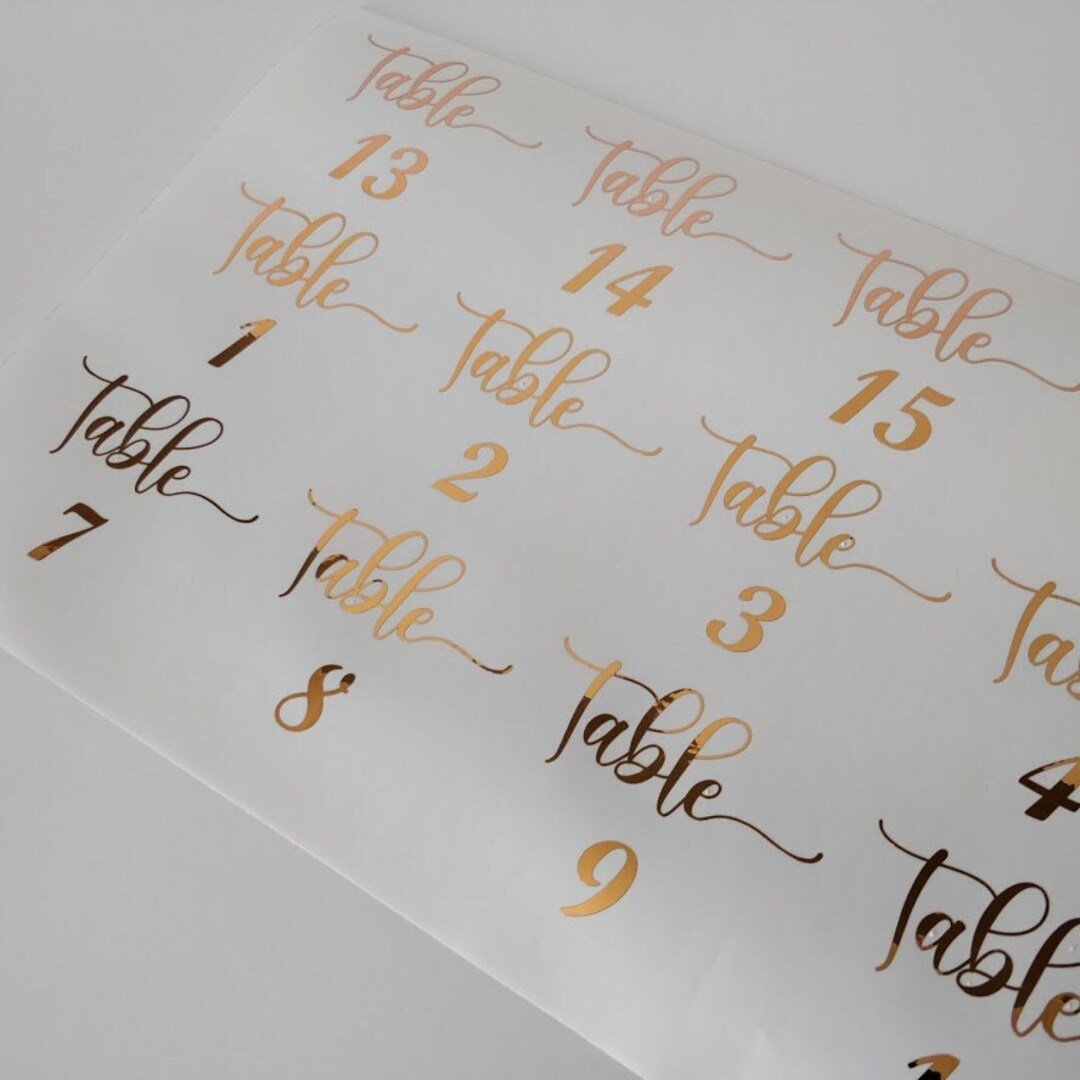 Table
13
Table
14
Table
15
Table
1
Table
2
Table
3
Table
7
Table
8
Table
9
4
Table